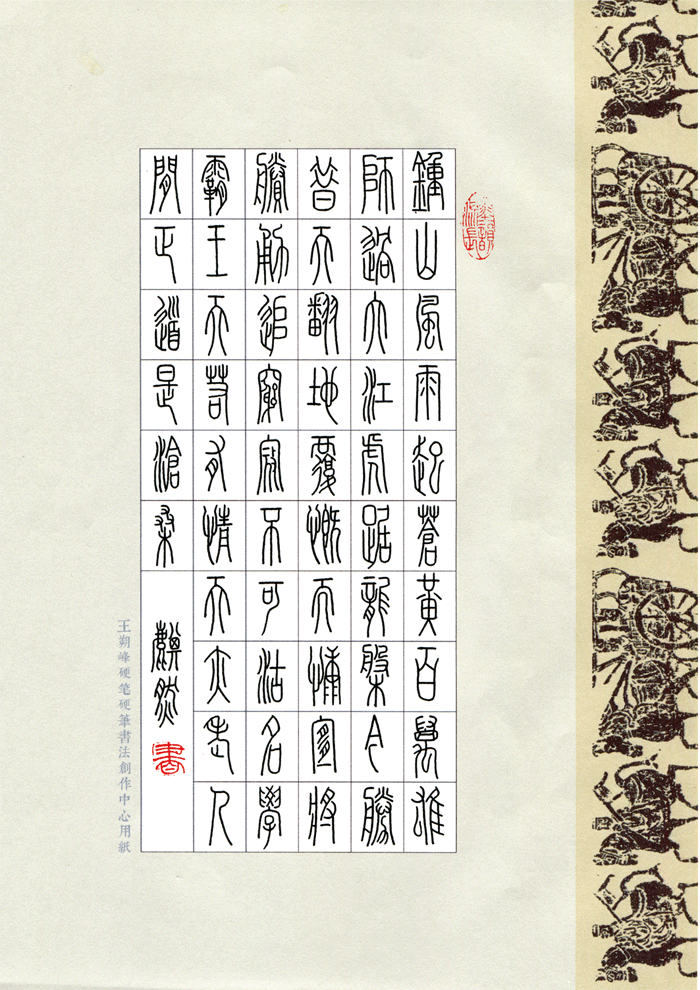 鍾山風雨起蒼黃百萬雄
師過大江虎踞龍盤今勝
昔天翻地覆慨而慷宜將
賸勇追窮寇不可沽名學
霸王天若有情天亦老人
間正道是滄桑
然
書
王朔峰硬笔硬筆書法創作中心用紙